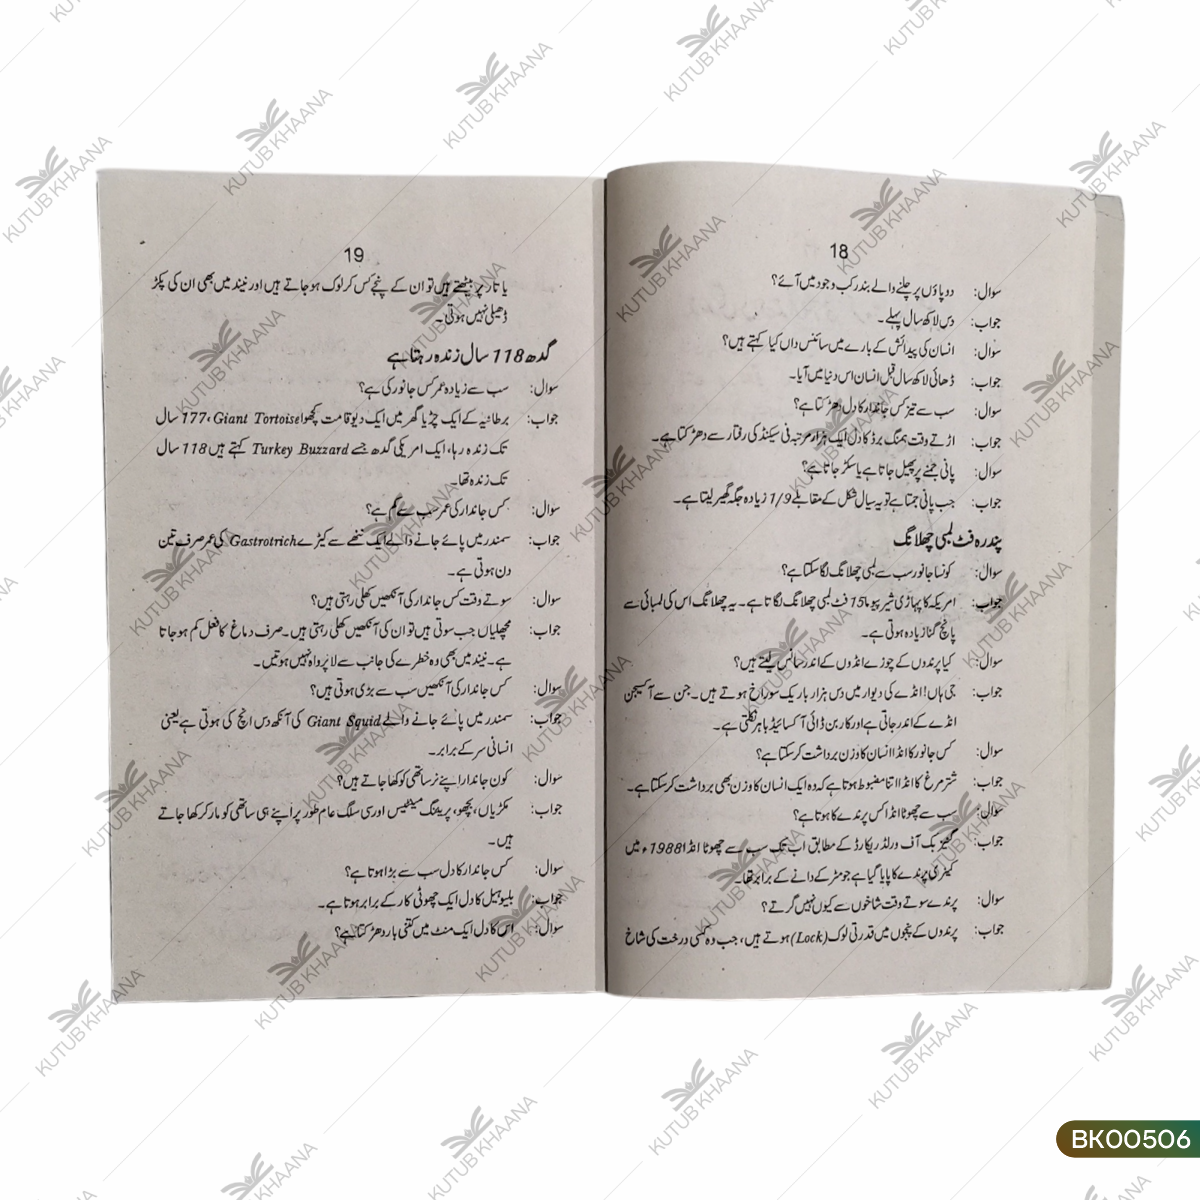 18
سوال: دو پاؤں پر چلنے والے بندر کب وجود میں آئے؟
جواب: دس لاکھ سال پہلے۔
سوال: انسان کی پیدائش کے بارے میں سائنس داں کیا کہتے ہیں؟
جواب: ڈھائی لاکھ سال قبل انسان اس دنیا میں آیا۔
سوال: سب سے تیز کس جاندار کا دل دھڑکتا ہے؟
جواب: اڑتے وقت ہمنگ برڈ کا دل ایک ہزار مرتبہ فی سیکنڈ کی رفتار سے دھڑکتا ہے۔
سوال: پانی جمنے پر پھیل جاتا ہے یا سکڑ جاتا ہے؟
جواب: جب پانی جمتا ہے تو یہ سیال شکل کے مقابلے 1/9 زیادہ جگہ گھیر لیتا ہے۔
پندرہ فٹ لمبی چھلانگ
سوال: کونسا جانور سب سے لمبی چھلانگ لگا سکتا ہے؟
جواب: امریکہ کا پہاڑی شیر پیوما 15 فٹ لمبی چھلانگ لگاتا ہے۔ یہ چھلانگ اس کی لمبائی سے
پانچ گنا زیادہ ہوتی ہے۔
سوال: کیا پرندوں کے چوزے انڈوں کے اندر سانس لیتے ہیں؟
جواب: جی ہاں! انڈے کی دیوار میں دس ہزار باریک سوراخ ہوتے ہیں۔ جن سے آکسیجن
انڈے کے اندر جاتی ہے اور کاربن ڈائی آکسائیڈ باہر نکلتی ہے۔
سوال: کس جانور کا انڈا انسان کا وزن برداشت کر سکتا ہے؟
جواب: شتر مرغ کا انڈا اتنا مضبوط ہوتا ہے کہ وہ ایک انسان کا وزن بھی برداشت کر سکتا ہے۔
سوال: سب سے چھوٹا انڈا کس پرندے کا ہوتا ہے؟
جواب: گنیز بک آف ورلڈ ریکارڈ کے مطابق اب تک سب سے چھوٹا انڈا 1988ء میں
کینری پرندے کا پایا گیا ہے جو مٹر کے دانے کے برابر تھا۔
سوال: پرندے سوتے وقت شاخوں سے کیوں نہیں گرتے؟
جواب: پرندوں کے پنجوں میں قدرتی لوک (Lock) ہوتے ہیں، جب وہ کسی درخت کی شاخ
19
یا تار پر بیٹھتے ہیں تو ان کے پنجے کس کر لوک ہو جاتے ہیں اور نیند میں بھی ان کی پکڑ
ڈھیلی نہیں ہوتی۔
گدھ 118 سال زندہ رہتا ہے
سوال: سب سے زیادہ عمر کس جانور کی ہے؟
جواب: برطانیہ کے ایک چڑیا گھر میں ایک دیو قامت کچھوا Giant Tortoise، 177 سال
تک زندہ رہا، ایک امریکی گدھ جسے Turkey Buzzard کہتے ہیں 118 سال
تک زندہ تھا۔
سوال: کس جاندار کی عمر سب سے کم ہے؟
جواب: سمندر میں پائے جانے والے ایک ننھے سے کیڑے Gastrotrich کی عمر صرف تین
دن ہوتی ہے۔
سوال: سوتے وقت کس جاندار کی آنکھیں کھلی رہتی ہیں؟
جواب: مچھلیاں جب سوتی ہیں تو ان کی آنکھیں کھلی رہتی ہیں۔ صرف دماغ کا فعل کم ہو جاتا
ہے۔ نیند میں بھی وہ خطرے کی جانب سے لا پرواہ نہیں ہوتیں۔
سوال: کس جاندار کی آنکھیں سب سے بڑی ہوتی ہیں؟
جواب: سمندر میں پائے جانے والے Giant Squid کی آنکھ دس انچ کی ہوتی ہے یعنی
انسانی سر کے برابر۔
سوال: کون جاندار اپنے نر ساتھی کو کھا جاتے ہیں؟
جواب: مکڑیاں، بچھو، پرینگ مینٹیس اور سی سلگ عام طور پر اپنے ہی ساتھی کو مار کر کھا جاتے
ہیں۔
سوال: کس جاندار کا دل سب سے بڑا ہوتا ہے؟
جواب: بلیو ہیل کا دل ایک چھوٹی کار کے برابر ہوتا ہے۔
سوال: اس کا دل ایک منٹ میں کتنی بار دھڑکتا ہے؟
KUTUB KHAANA
BK00506